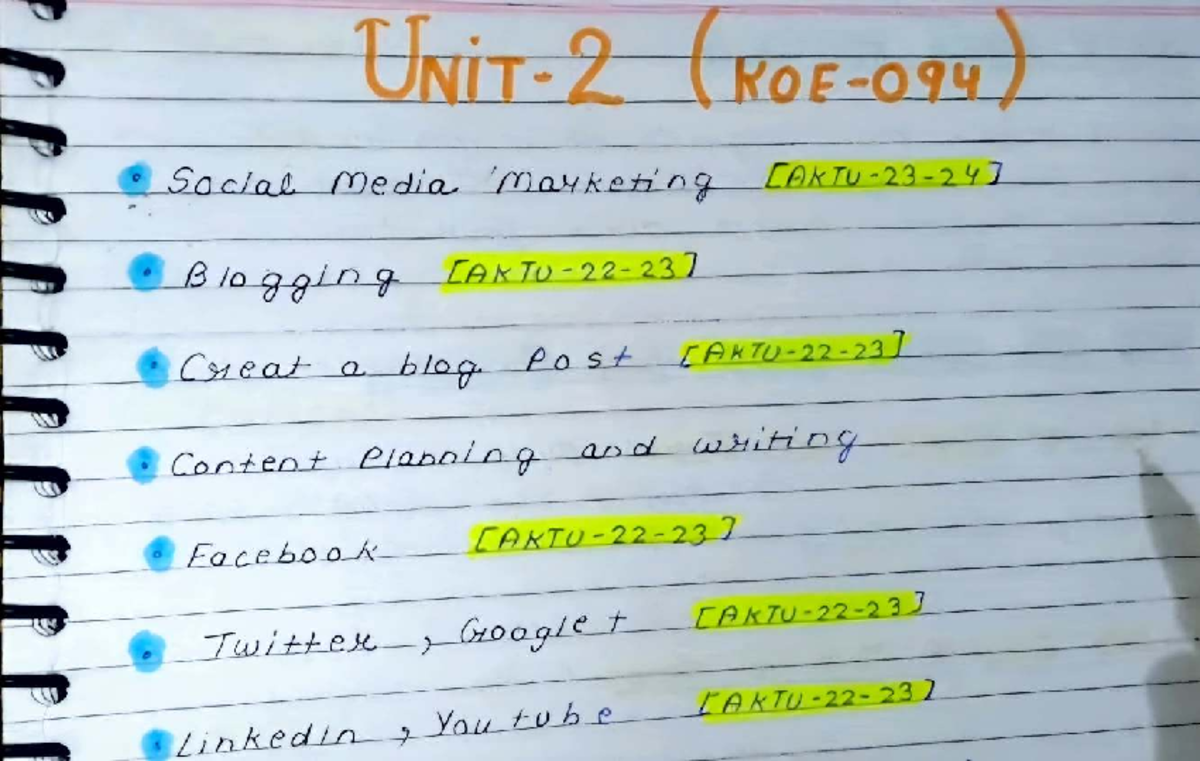 UNIT-2 (KOE-094)
Social Media Marketing [AKTU-23-24]
Blogging [AKTU-22-23]
Creat a blog Post [AKTU-22-23]
Content Planning and writing
Facebook [AKTU-22-23]
Twitter, Google+ [AKTU-22-23]
Linkedin, Youtube [AKTU-22-23]